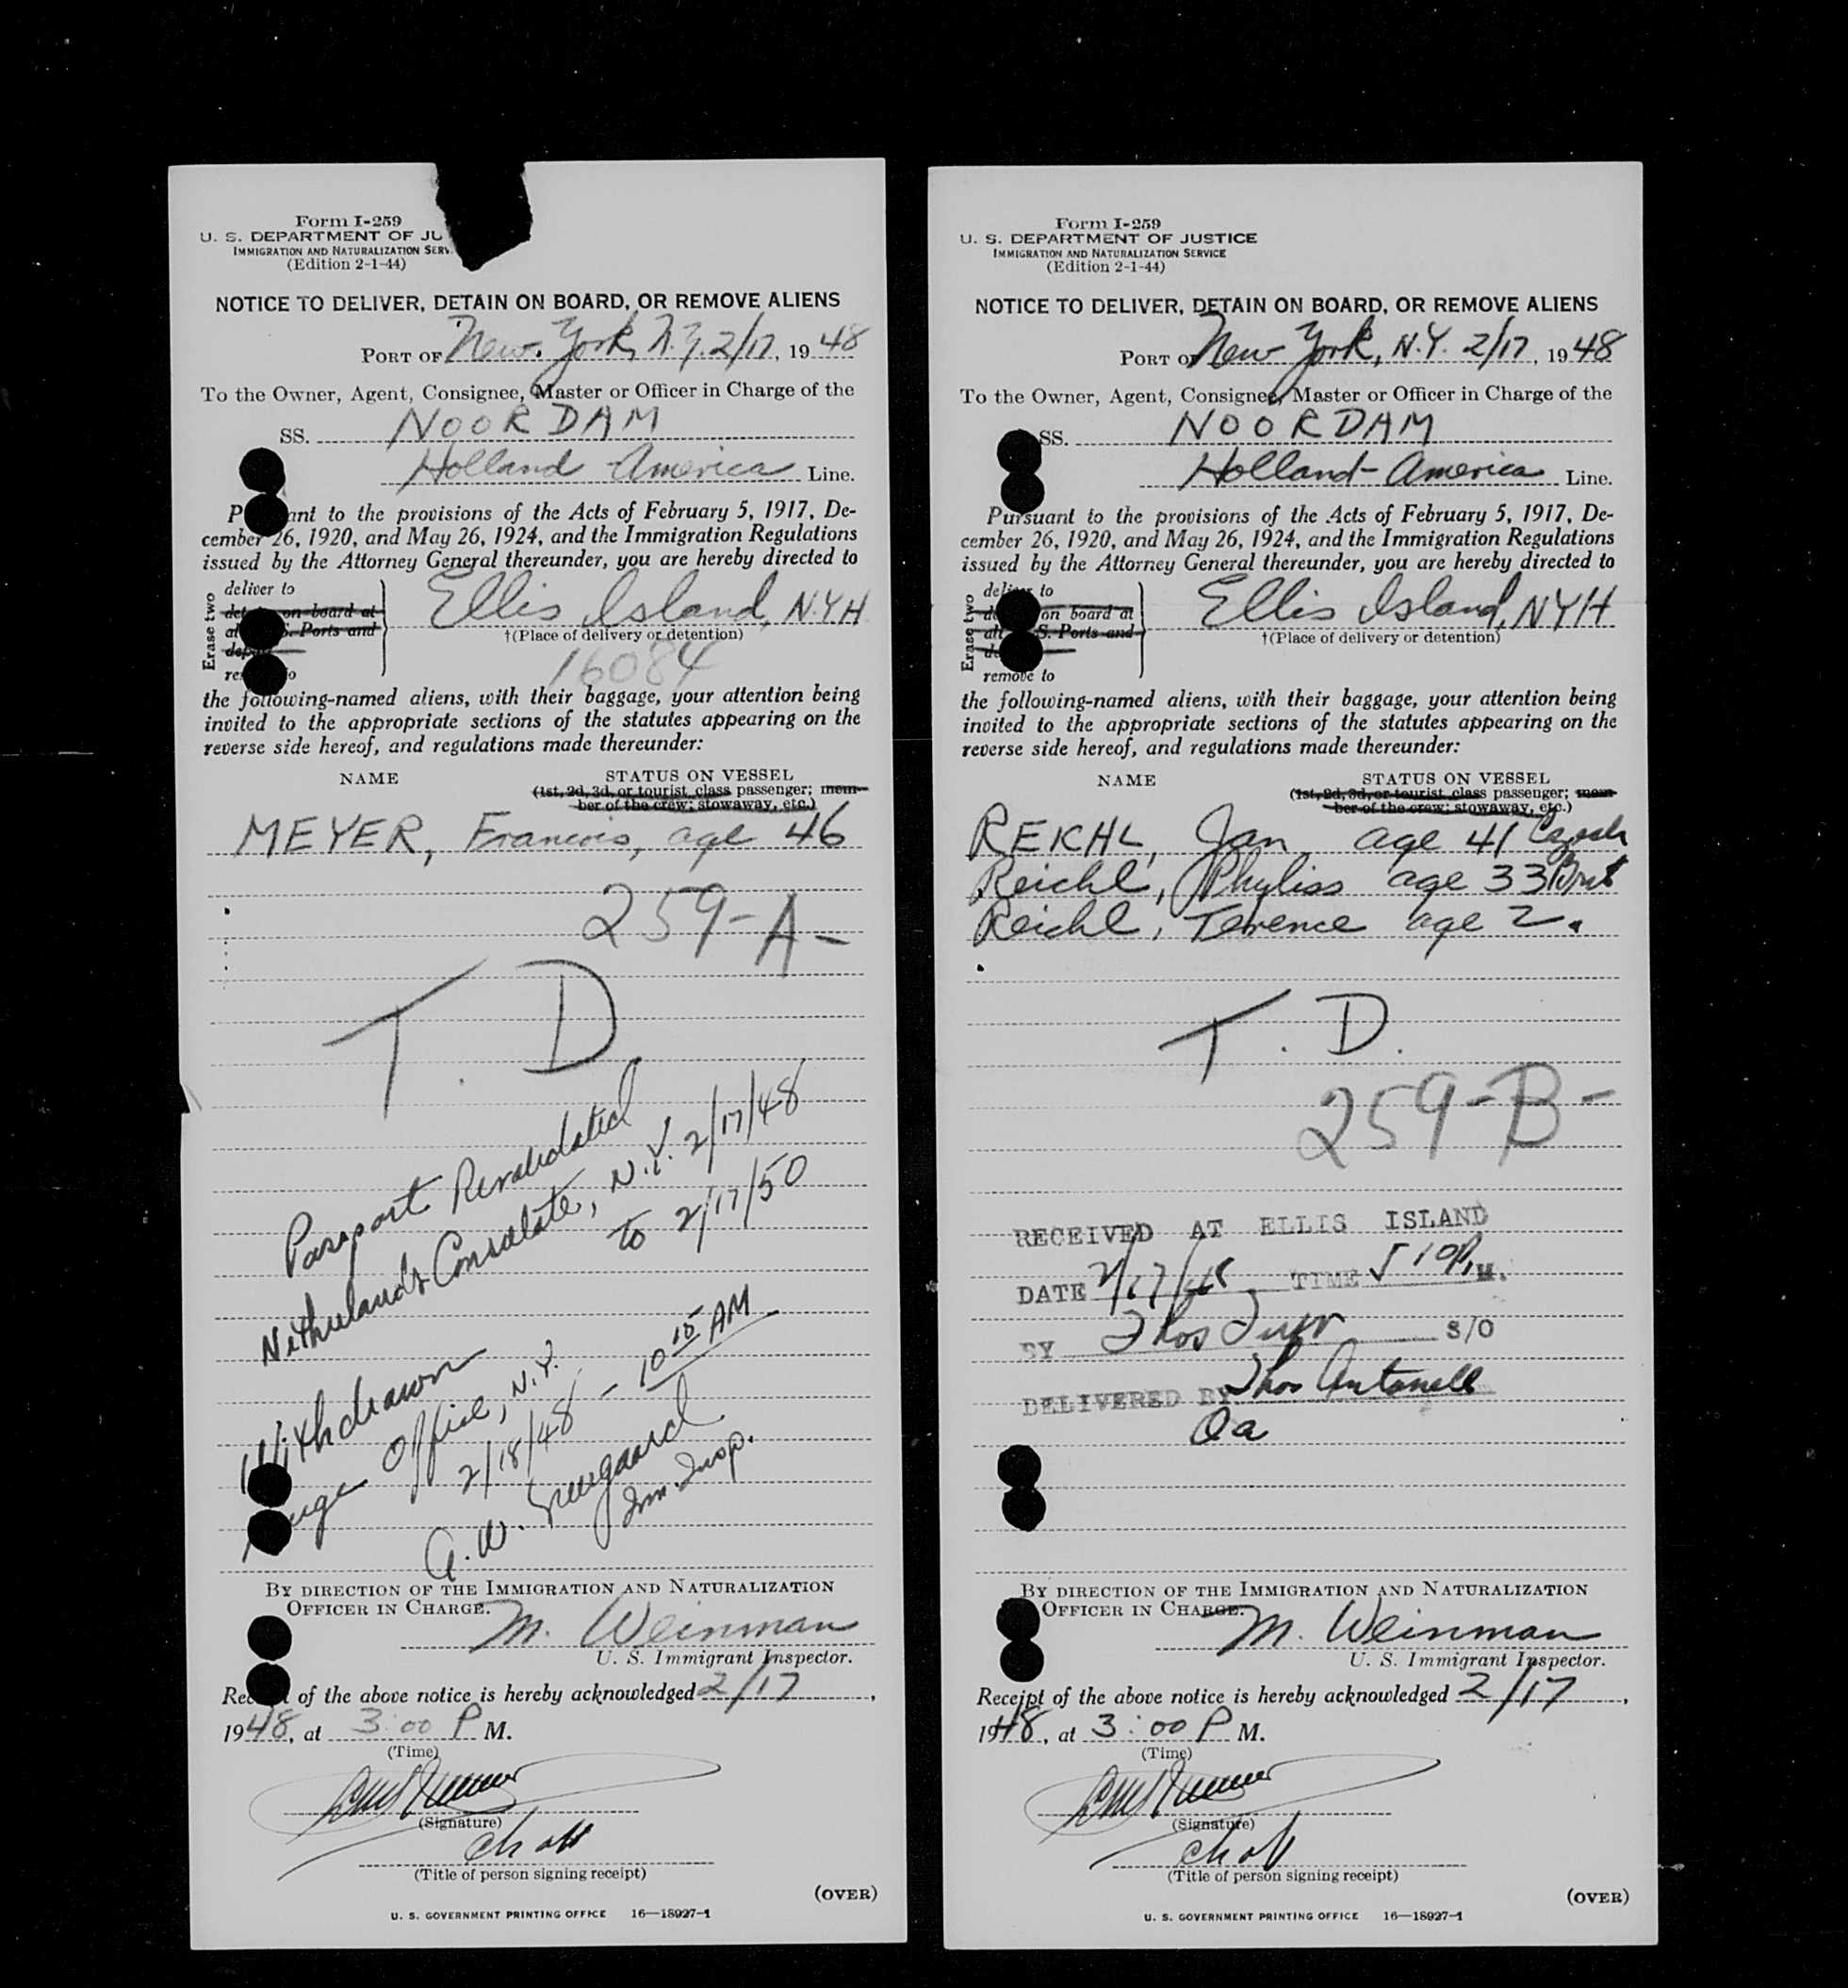 Form I-259
U. S. DEPARTMENT OF JU
IMMIGRATION AND NATURALIZATION SERV
(Edition 2-1-44)
NOTICE TO DELIVER, DETAIN ON BOARD, OR REMOVE ALIENS
PORT OF New York, N.Y. 2/17, 1948
To the Owner, Agent, Consignee, Master or Officer in Charge of the
SS. NOORDAM
Holland America Line.
P ant to the provisions of the Acts of February 5, 1917, De-
cember 26, 1920, and May 26, 1924, and the Immigration Regulations
issued by the Attorney General thereunder, you are hereby directed to
Erase two
deliver to
on board at
S. Ports and
Ellis Island, N.Y.H
†(Place of delivery or detention)
16084
the following-named aliens, with their baggage, your attention being
invited to the appropriate sections of the statutes appearing on the
reverse side hereof, and regulations made thereunder:
NAME STATUS ON VESSEL
(1st, 2d, 3d, or tourist class passenger; mem-
ber of the crew; stowaway, etc.)
MEYER, Francois, age 46
259-A-
T. D.
Passport Revalidated
Netherlands Consulate, N.Y. 2/17/48
to 2/17/50
Withdrawn
Office, N.Y.
2/18/48 - 10 15 AM
A. W.
Imm. Insp.
BY DIRECTION OF THE IMMIGRATION AND NATURALIZATION
OFFICER IN CHARGE.
M. Weinman
U. S. Immigrant Inspector.
Rec t of the above notice is hereby acknowledged 2/17,
1948, at 3:00 P M.
(Time)
(Signature)
(Title of person signing receipt)
(OVER)
U. S. GOVERNMENT PRINTING OFFICE 16—18927-1
Form I-259
U. S. DEPARTMENT OF JUSTICE
IMMIGRATION AND NATURALIZATION SERVICE
(Edition 2-1-44)
NOTICE TO DELIVER, DETAIN ON BOARD, OR REMOVE ALIENS
PORT OF New York, N.Y. 2/17, 1948
To the Owner, Agent, Consignee, Master or Officer in Charge of the
SS. NOORDAM
Holland-America Line.
Pursuant to the provisions of the Acts of February 5, 1917, De-
cember 26, 1920, and May 26, 1924, and the Immigration Regulations
issued by the Attorney General thereunder, you are hereby directed to
Erase two
deliver to
on board at
S. Ports and
remove to
Ellis Island, NYH
†(Place of delivery or detention)
the following-named aliens, with their baggage, your attention being
invited to the appropriate sections of the statutes appearing on the
reverse side hereof, and regulations made thereunder:
NAME STATUS ON VESSEL
(1st, 2d, 3d, or tourist class passenger; mem-
ber of the crew; stowaway, etc.)
REICHL, Jan age 41 Czech
Reichl, Phyliss age 33 Brit
Reichl, Terence age 2.
T. D.
259-B-
RECEIVED AT ELLIS ISLAND
DATE 2/17/48 TIME 510 P.M.
BY Thos S/O
DELIVERED BY Thos
BY DIRECTION OF THE IMMIGRATION AND NATURALIZATION
OFFICER IN CHARGE.
M. Weinman
U. S. Immigrant Inspector.
Receipt of the above notice is hereby acknowledged 2/17,
1948, at 3:00 P M.
(Time)
(Signature)
(Title of person signing receipt)
(OVER)
U. S. GOVERNMENT PRINTING OFFICE 16—18927-1